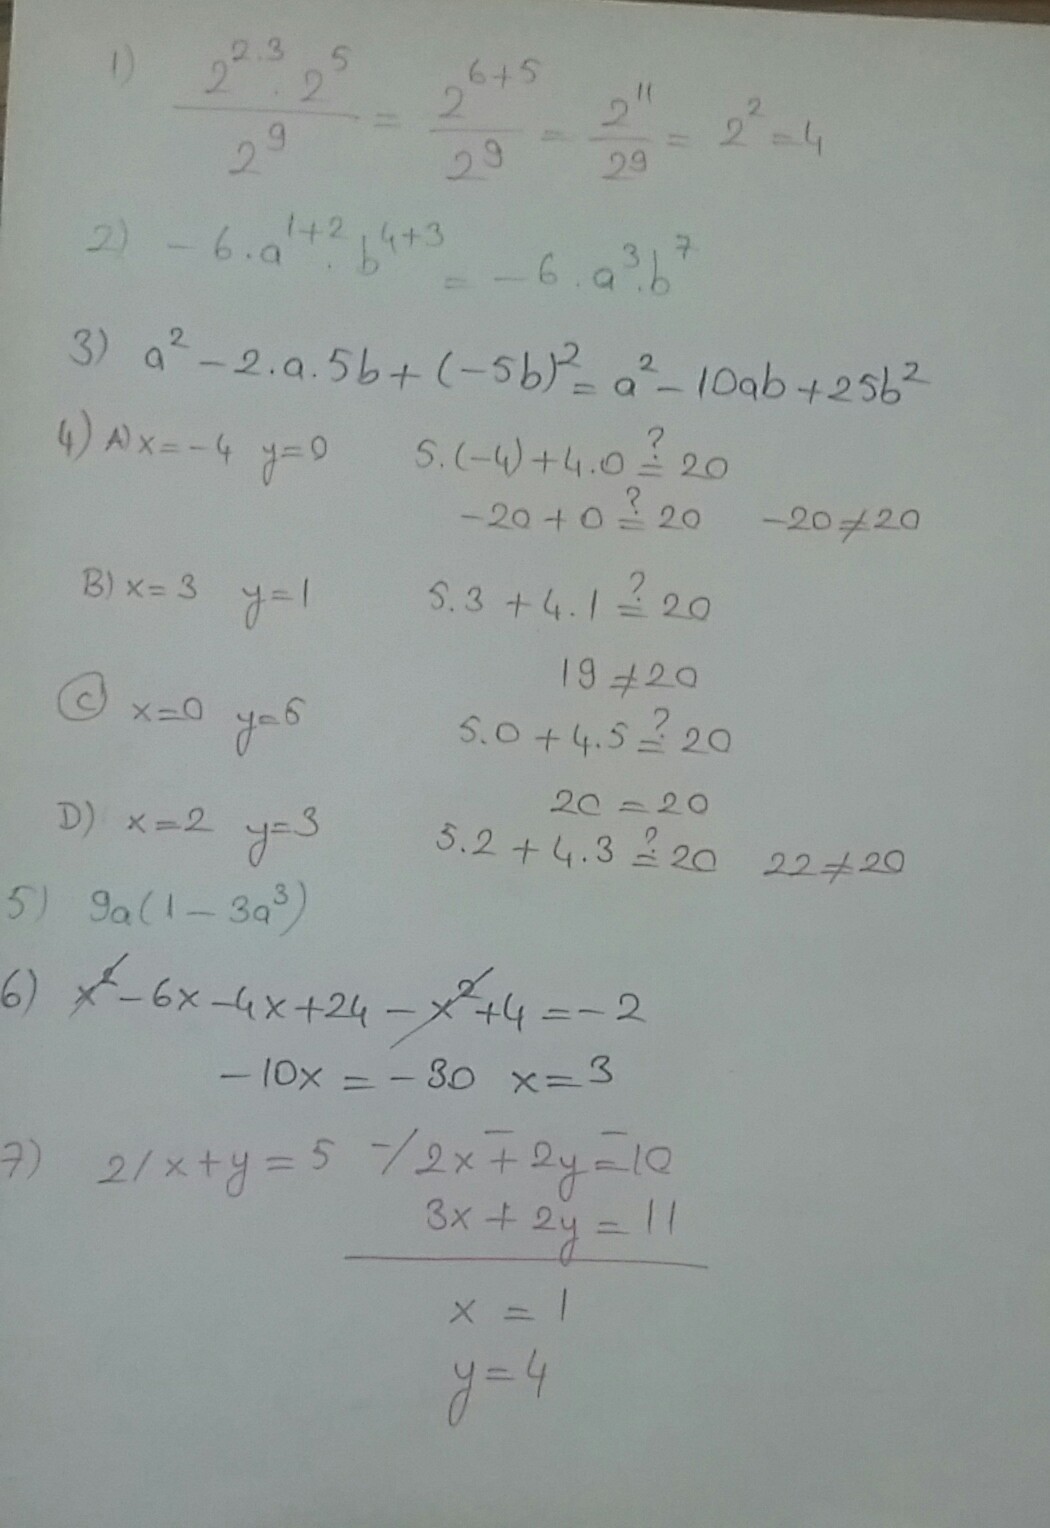 1) 2^2.3 . 2^5 / 2^9 = 2^6+5 / 2^9 = 2^11 / 29 = 2^2 = 4
2) - 6.a^1+2 . b^4+3 = - 6 . a^3.b^7
3) a^2 - 2.a.5b + (-5b)^2 = a^2 - 10ab + 25b^2
4) A) x = -4 y=0 5.(-4)+4.0 ≟ 20
-20 + 0 ≟ 20 -20 ≠ 20
B) x= 3 y=1 5.3 + 4.1 ≟ 20
19 ≠ 20
C x=0 y=5 5.0 + 4.5 ≟ 20
20 = 20
D) x=2 y=3 5.2 + 4.3 ≟ 20 22 ≠ 20
5) 9a(1 - 3a^3)
6) x^2 - 6x - 4x + 24 - x^2 + 4 = - 2
- 10x = - 30 x = 3
7) 2/ x+y = 5 -/ 2x + 2y = 10
3x + 2y = 11
x = 1
y = 4